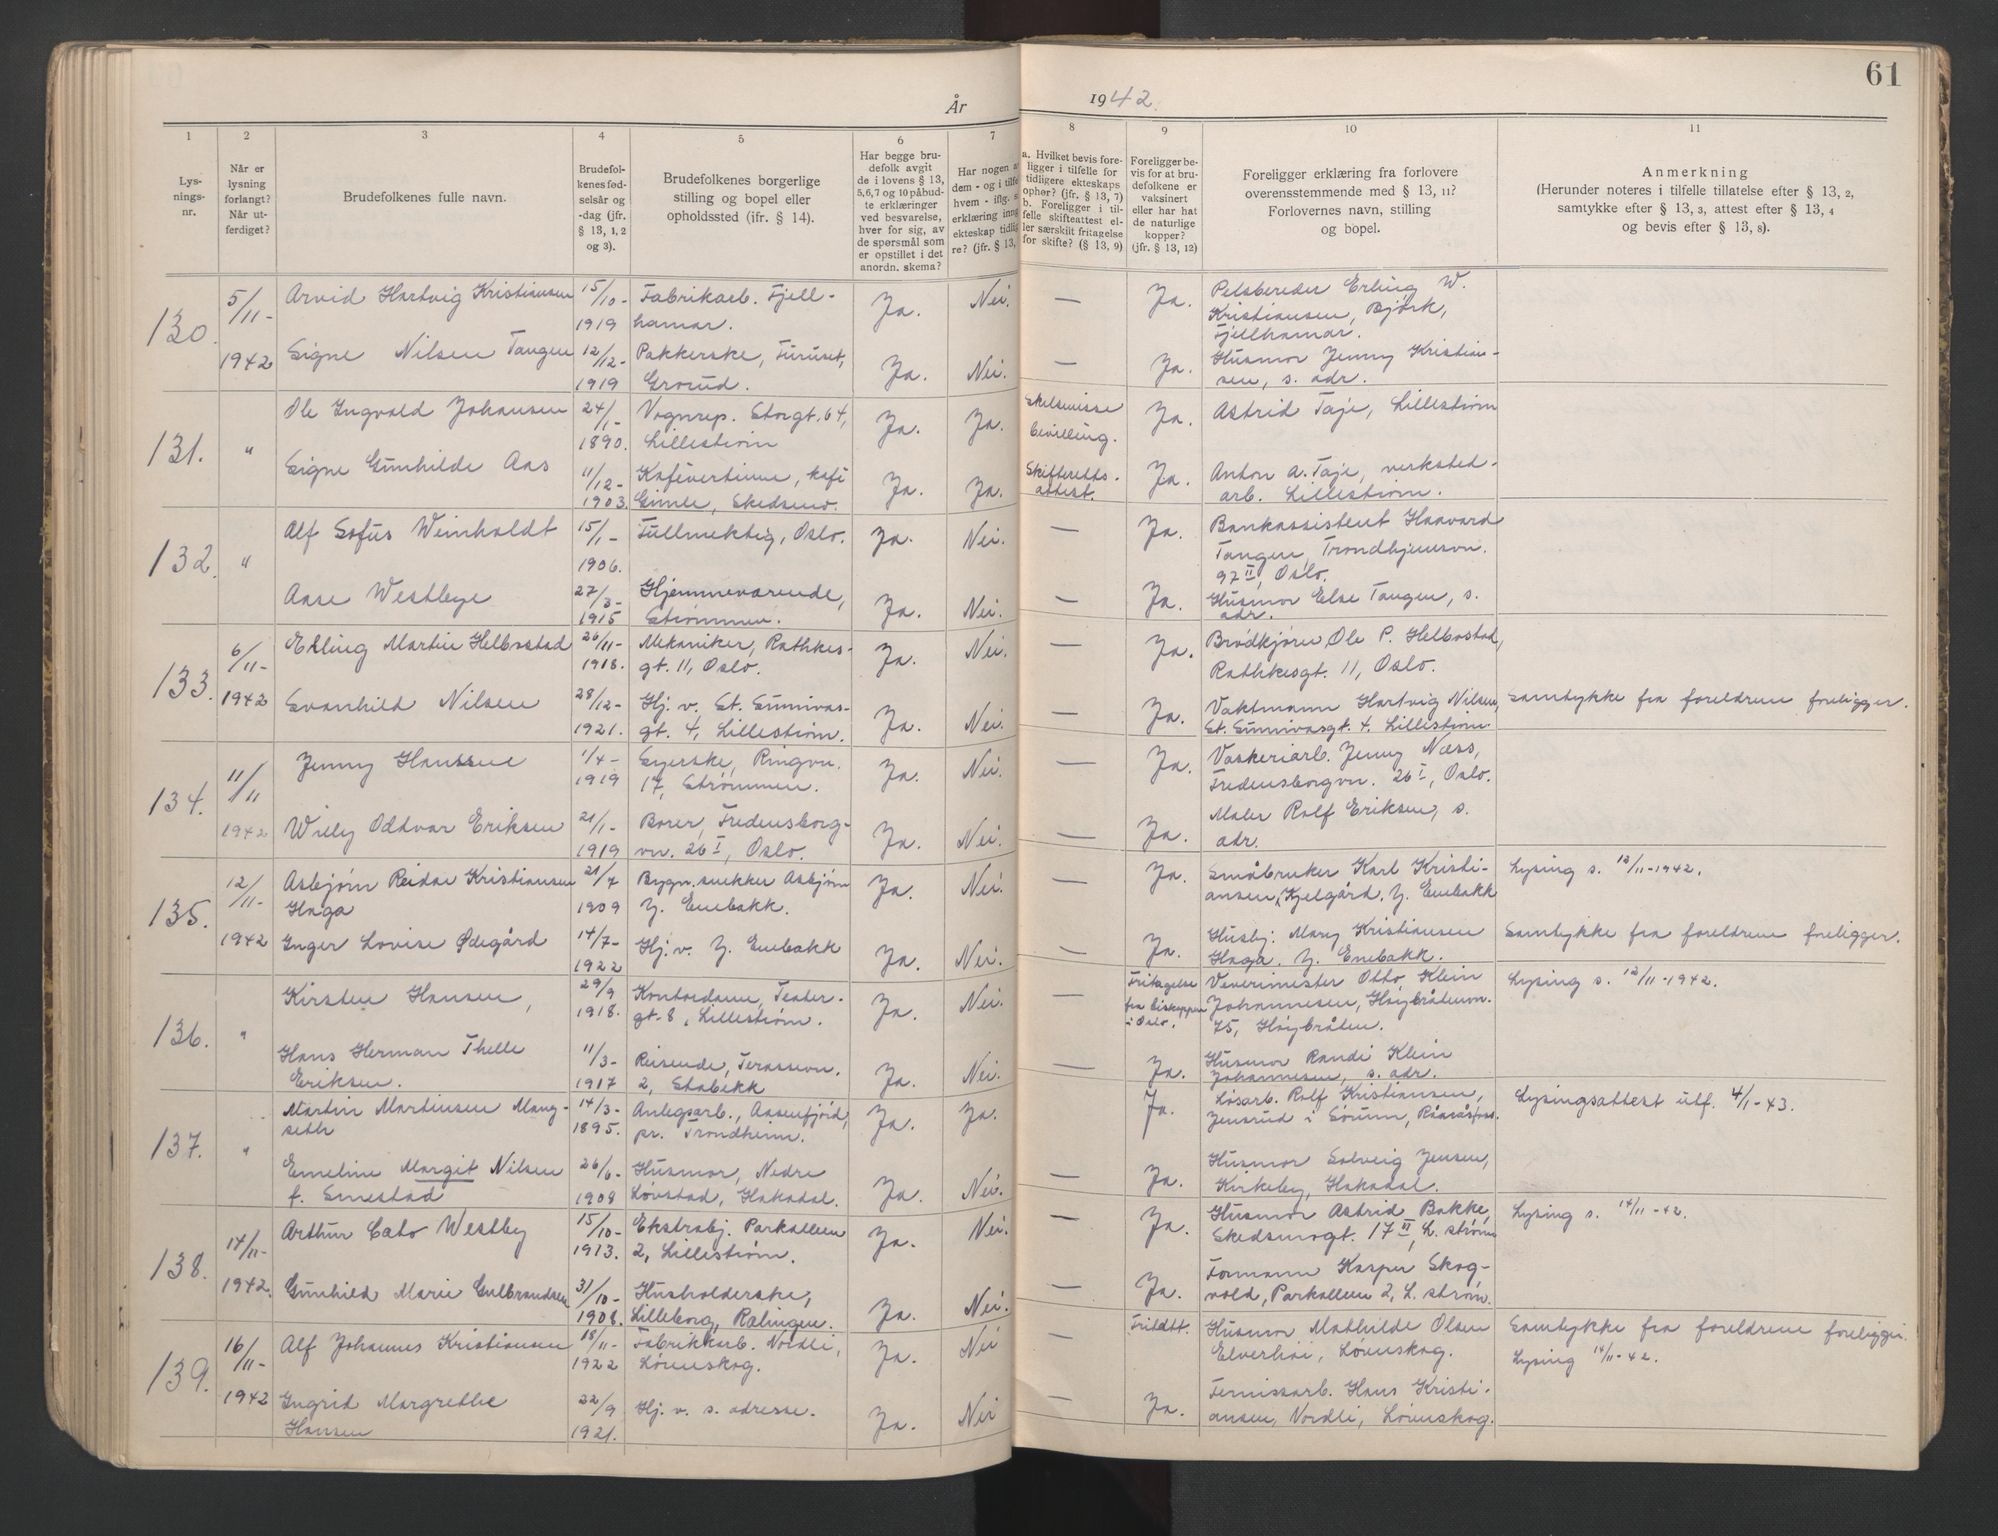 61
År
1942.
1
2
3
4
5
6
7
8
9
10
11
Lys-
nings-
nr.
Når er
lysning
forlangt?
Når ut-
ferdiget?
Brudefolkenes fulle navn.
Brudefol-
kenes fød-
selsår og
-dag (jfr.
§ 13, 1, 2
og 3).
Brudefolkenes borgerlige
stilling og bopel eller
opholdssted (jfr. § 14).
Har begge bru-
defolk avgit
de i lovens § 13,
5,6,7 og 10 påbud-
te erklæringer
ved besvarelse,
hver for sig, av
de spørsmål som
er opstillet i det
anordn. skema?
Har nogen a
dem - og i tilfe
hvem - iflg. s
erklæring inng
ekteskap tidlig
re? (jfr. § 13,
a. Hvilket bevis fore-
ligger i tilfelle for
tidligere ekteskaps
ophør? (jfr. § 13, 7)
b. Foreligger i til-
felle skifteattest el-
ler særskilt fritagelse
for skifte? (§ 13, 9)
Foreligger be-
vis for at bru-
defolkene er
vaksinert
eller har hat
de naturlige
kopper?
(jfr. § 13, 12)
Foreligger erklæring fra forlovere
overensstemmende med § 13, 11?
Forlovernes navn, stilling
og bopel.
Anmerkning
(Herunder noteres i tilfelle tillatelse efter § 13, 2,
samtykke efter § 13, 3, attest efter § 13, 4
og bevis efter § 13, 8).
130.
5/11-
1942
Arvid Hartvig Kristiansen
15/10-
1919
Fabrikarb. Fjell-
hamar.
Ja.
Nei.
—
Ja.
Pelsbereder Erling W.
Kristiansen, Bjørk,
Fjellhamar.
Signe Nilsen Tangen
12/12-
1919
Pakkerske, Furuset,
Grorud.
Ja.
Nei.
—
Ja.
Husmor Jenny Kristian-
sen, s. adr.
131.
"
Ole Ingvald Johansen
24/1-
1890.
Vognrep. Storgt. 64,
Lillestrøm
Ja.
Ja.
Skilsmisse
bevilling.
Ja.
Astrid Taje, Lillestrøm
Signe Gunhilde Aas
11/12-
1903.
Kafévertinne, kafe
Gimle, Skedsmo.
Ja.
Ja.
Skifteretts-
attest.
Ja.
Anton A. Taje, verksted-
arb. Lillestrøm.
132.
"
Alf Sofus Weinholdt
15/1-
1906.
Fullmektig, Oslo.
Ja.
Nei.
—
Ja.
Bankassistent Haavard
Tangen, Trondhjemsvn.
97 II, Oslo.
Aase Westbye
27/3-
1915
Hjemmeværende,
Strømmen.
Ja.
Nei.
—
Ja.
Husmor Else Tangen, s.
adr.
133.
6/11-
1942
Erling Martin Helbostad
26/11-
1918.
Mekaniker, Rathkes-
gt. 11, Oslo.
Ja.
Nei.
—
Ja.
Brødkjører Ole P. Helbostad,
Rathkesgt. 11, Oslo.
Svanhild Nilsen
28/12-
1921.
Hj. v. St. Sunnivas-
gt. 4, Lillestrøm.
Ja.
Nei.
—
Ja.
Vaktmann Hartvig Nilsen,
St. Sunnivasgt. 4. Lillestrøm
Samtykke fra foreldrene foreligger.
134.
11/11
1942
Jenny Hanssen
1/4-
1919
Syerske, Ringvn.
17, Strømmen.
Ja.
Nei.
—
Ja.
Vaskeriarb. Jenny Næss,
Fredensborgvn. 26 I, Oslo.
Willy Oddvar Eriksen
21/1-
1919
Borer, Fredensborg-
vn. 26 I, Oslo.
Ja.
Nei.
—
Ja.
Maler Rolf Eriksen, s.
adr.
135.
12/11-
1942
Asbjørn Reidar Kristiansen
Haga
21/7
1909
Bygn.snekker Asbjørn
Y. Enebakk.
Ja.
Nei.
Ja.
Småbruker Karl Kristi-
ansen, Kjelgård, Y. Enebakk
Lysing s. 12/11-1942.
Inger Lovise Ødegård
14/7-
1922
Hj. v. Y. Enebakk
Ja.
Nei.
—
Ja.
Husbj: Mary Kristiansen
Haga, Y. Enebakk.
Samtykke fra foreldrene foreligger.
136.
"
Kirsten Hansen,
29/9
1918.
Kontordame, Teater-
gt. 8, Lillestrøm.
Ja.
Nei.
—
Fritagelse
fra biskoppen
i Oslo.
Veverimester Otto Klein
Johannesen, Høybråtenvn.
75, Høybråten.
Lysing s. 12/11-1942.
Hans Herman Thelle
Eriksen.
11/3-
1917
Reisende, Terassevn.
2, Stabekk
Ja.
Nei.
—
Ja.
Husmor Randi Klein
Johannesen, s. adr.
137.
"
Martin Martinsen Mang-
seth
14/3-
1895.
Anlegsarb., Aasenfjord,
pr. Trondheim.
Ja.
Ja.
Ja.
Løsarb. Rolf Kristiansen,
Jensrud i Sørum, Rånåsfoss.
Lysingsattest utf. 4/1-43.
Emeline Margit Nilsen
f. Ernestad
26/6-
1908
Husmor, Nedre
Løvstad, Hakadal.
Ja.
Nei.
—
Ja.
Husmor Solveig Jensen,
Kirkeby, Hakadal.
138.
14/11-
1942.
Arthur Cato Westby
15/10-
1913.
Ekstrabj. Parkalleen
2, Lillestrøm.
Ja.
Nei.
—
Ja.
Husmor Astrid Bakke,
Skedsmogt. 17 II, L. strøm
Lysing s. 14/11-42.
Gunhild Marie Gulbrandsen
31/10-
1908.
Husholderske,
Lilleborg, Rælingen.
Ja.
Nei.
—
Ja.
Formann Kasper Skog-
vold, Parkalleen 2, L. strøm.
139.
16/11-
1942
Alf Johannes Kristiansen
18/11-
1922
Fabrikkarb. Nordli,
Lørenskog.
Ja.
Nei
—
Fritatt.
Husmor Mathilde Olsen
Elverhøi, Lørenskog.
Samtykke fra foreldrene foreligger.
Lysing 14/11-42.
Ingrid Margrethe
Hansen
22/9
1921.
Hj. v. s. adresse.
Ja.
Nei
—
Ja.
Fernissarb. Hans Kristi-
ansen, Nordli, Lørenskog.